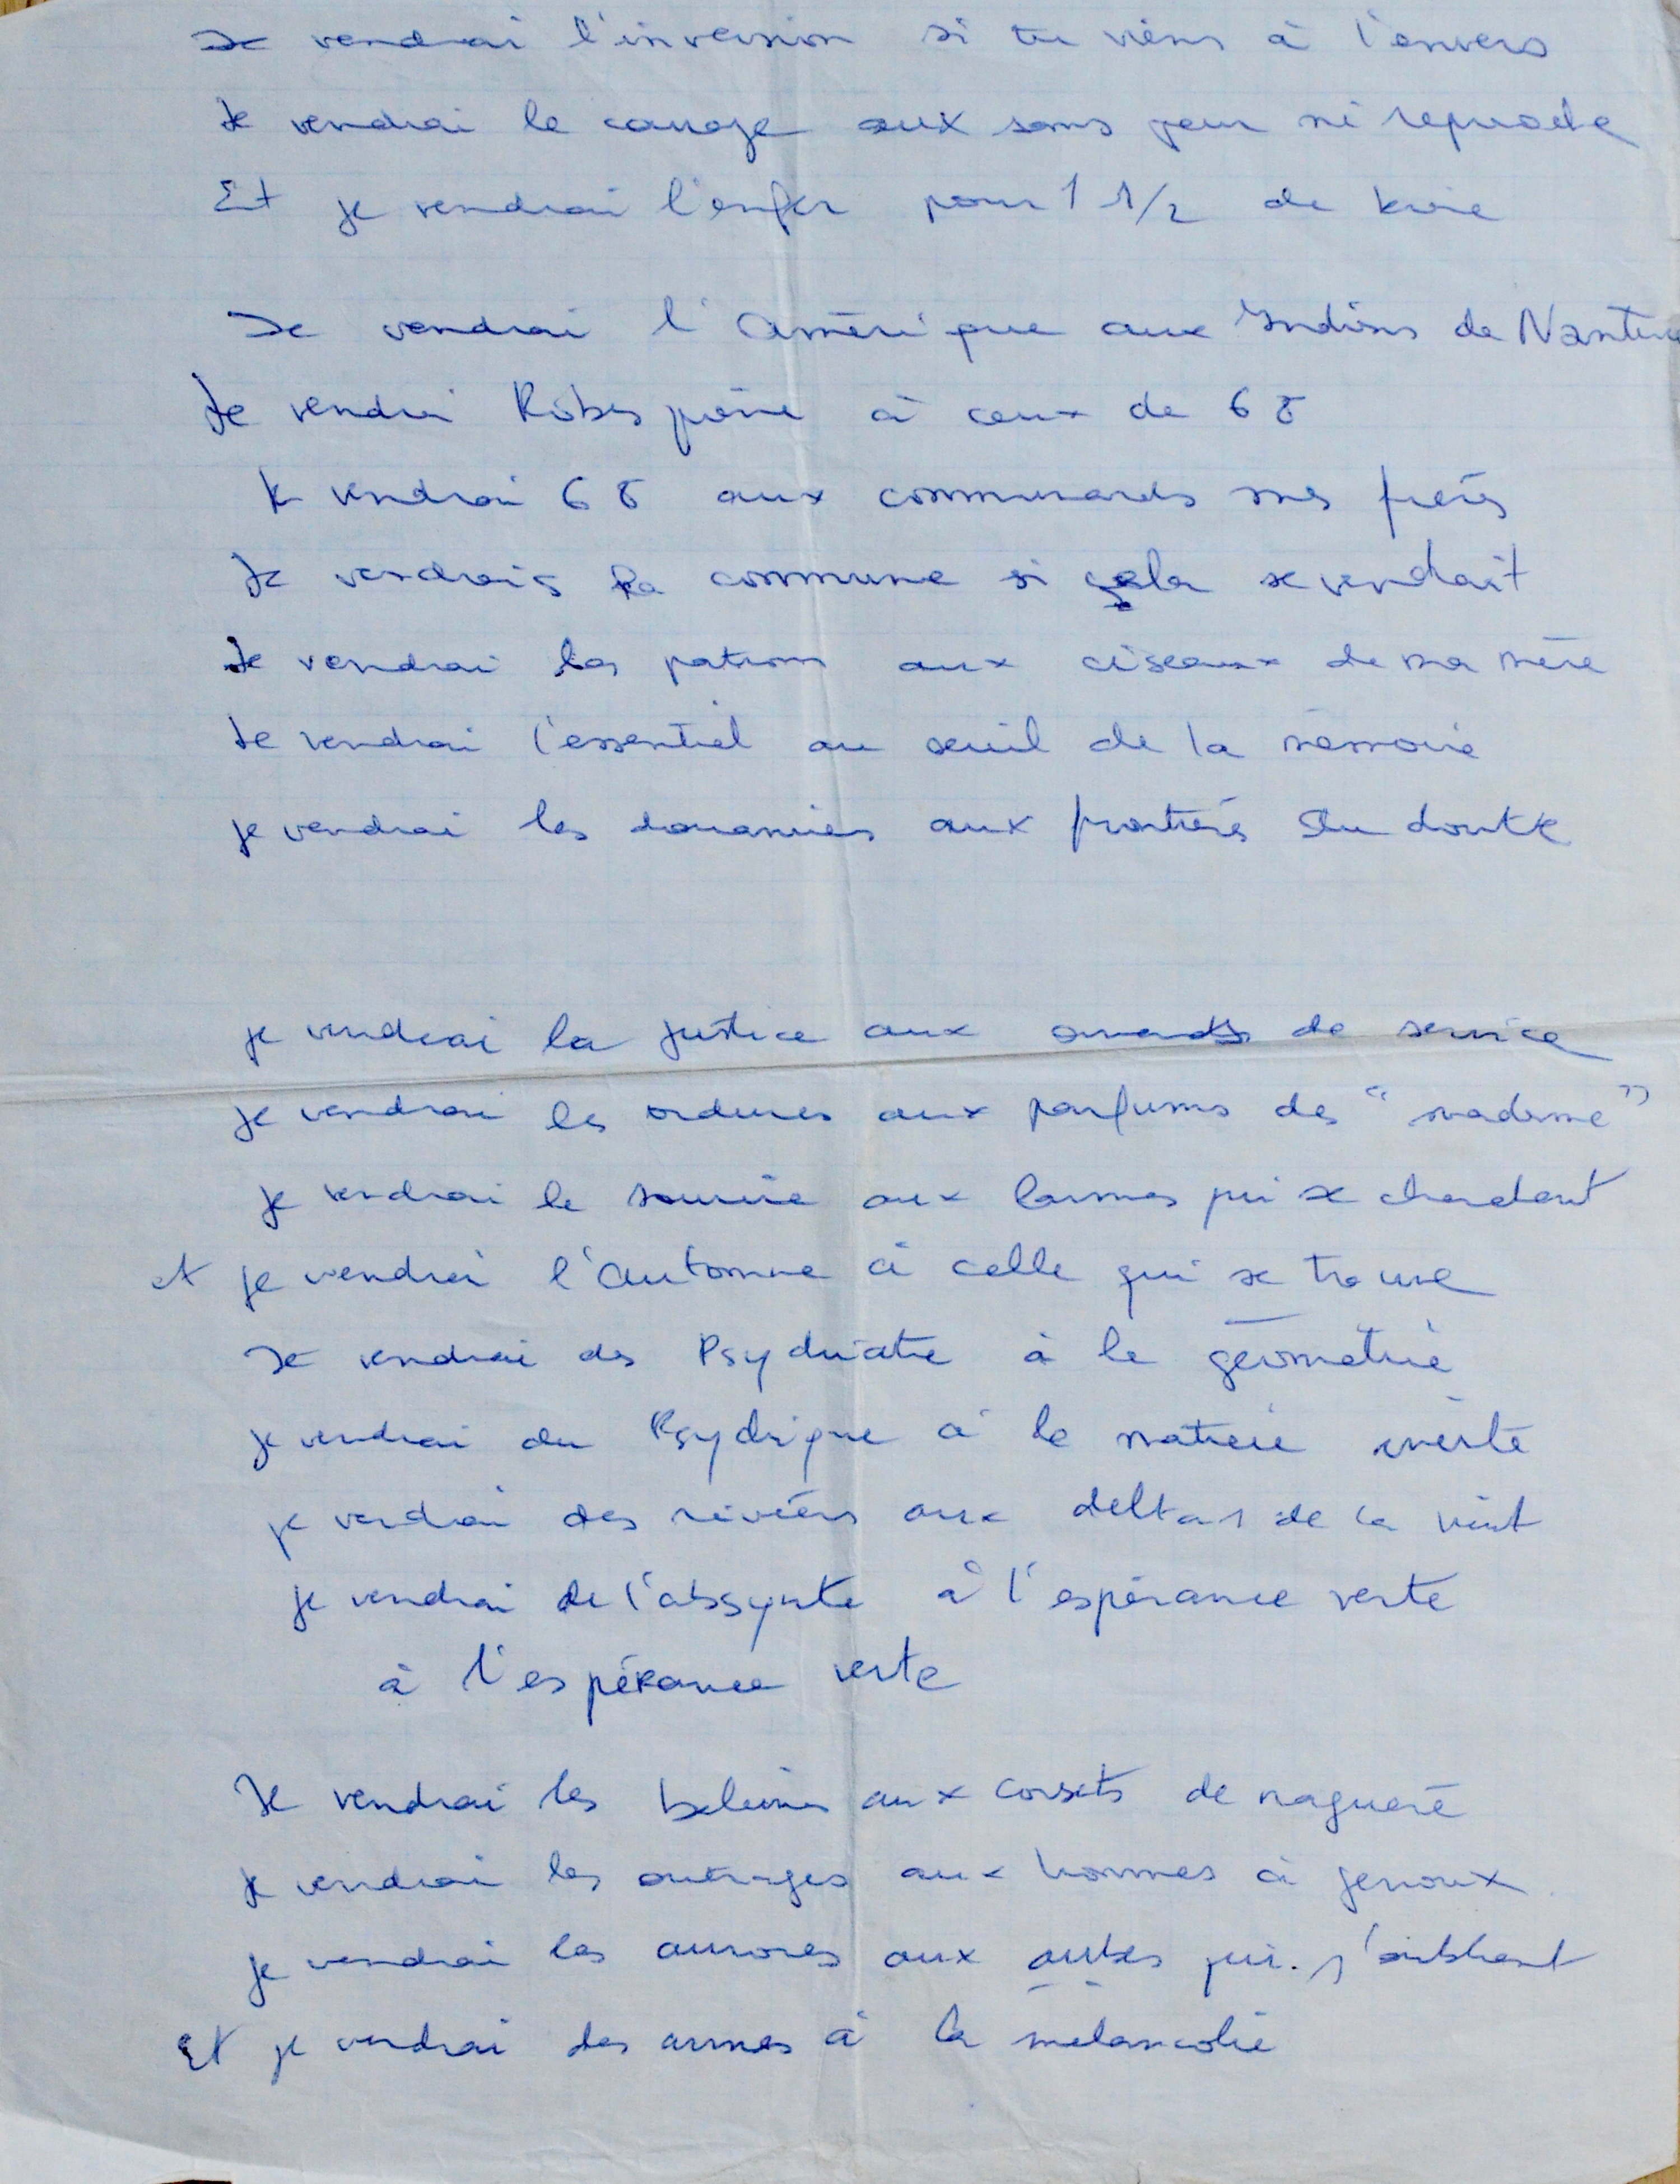 Je vendrai l'inversion si tu viens à l'envers
Je vendrai le courage aux sans peur ni reproche
Et je vendrai l'enfer pour 1 1/2 de
Je vendrai l'Amérique aux Indiens de Nanterre
Je vendrai Robespierre à ceux de 68
Je vendrai 68 aux communards mes frères
Je vendrais la commune si cela se vendait
Je vendrai les patrons aux ciseaux de ma mère
Je vendrai l'essentiel au seuil de la mémoire
je vendrai les douaniers aux frontières du doute
je vendrai la justice aux de service
je vendrai les ordures aux parfums des "madame"
je vendrai le sourire aux larmes qui se cherchent
et je vendrai l'automne à celle qui se trouve
Je vendrai des Psychiatre à la géométrie
je vendrai du Psychique à la matière inerte
je vendrai des rivières aux deltas de la nuit
je vendrai de l'absynte à l'espérance verte
à l'espérance verte
Je vendrai les baleines aux corsets de naguère
je vendrai les outrages aux hommes à genoux
je vendrai les aurores aux aubes qui s'oublient
Et je vendrai des armes à la mélancolie